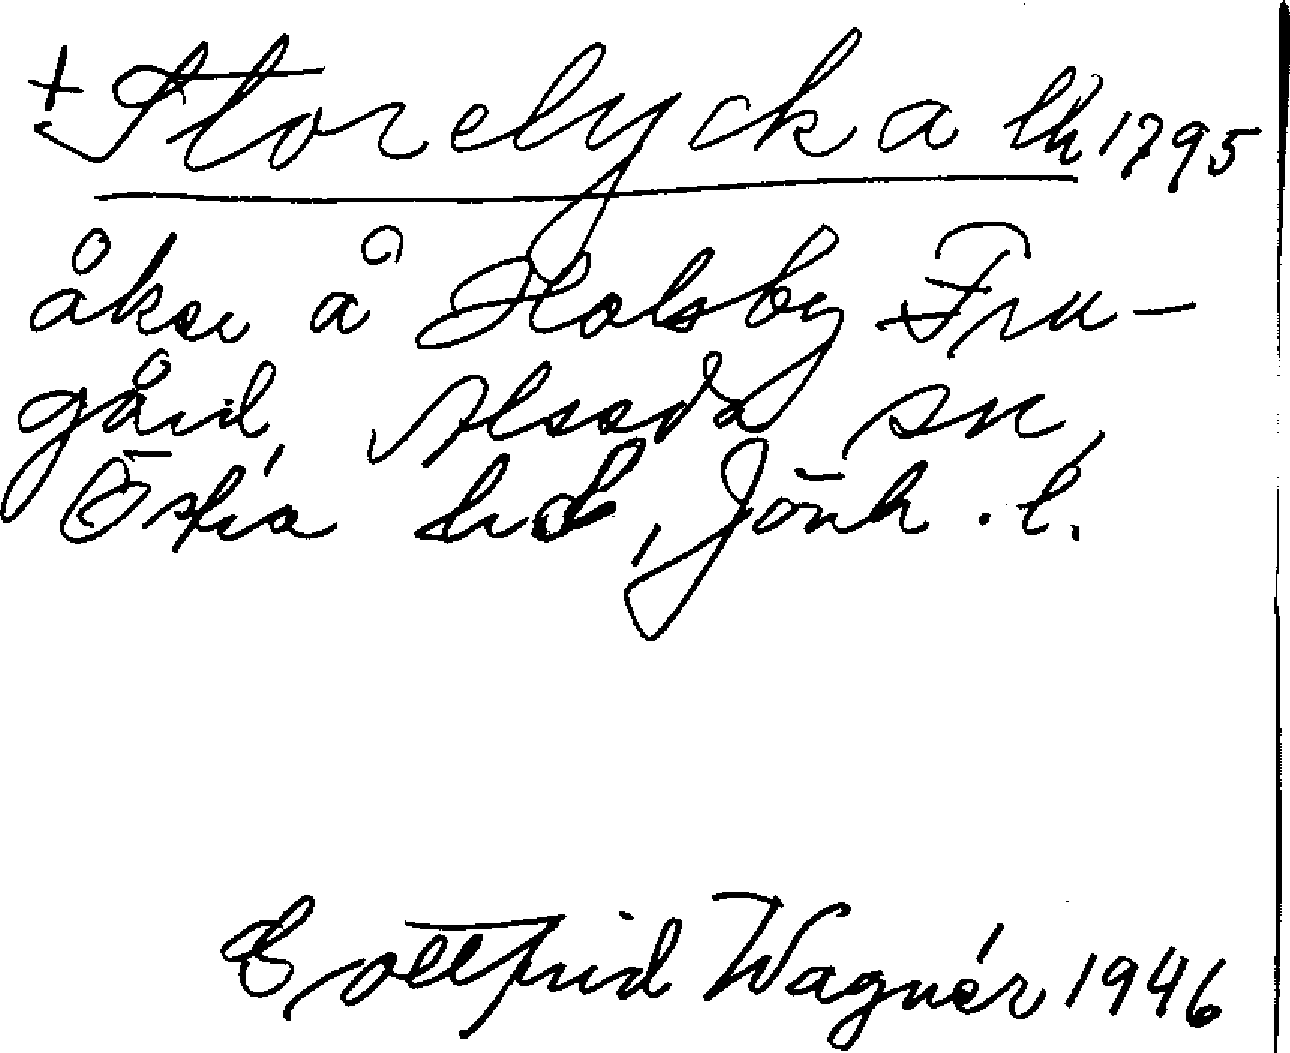 + Storelycka lh 1795
åker å Holsby Fru-
gård, Alseda sn,
Östra hd, Jönk. l.
Gottfrid Wagnér 1946